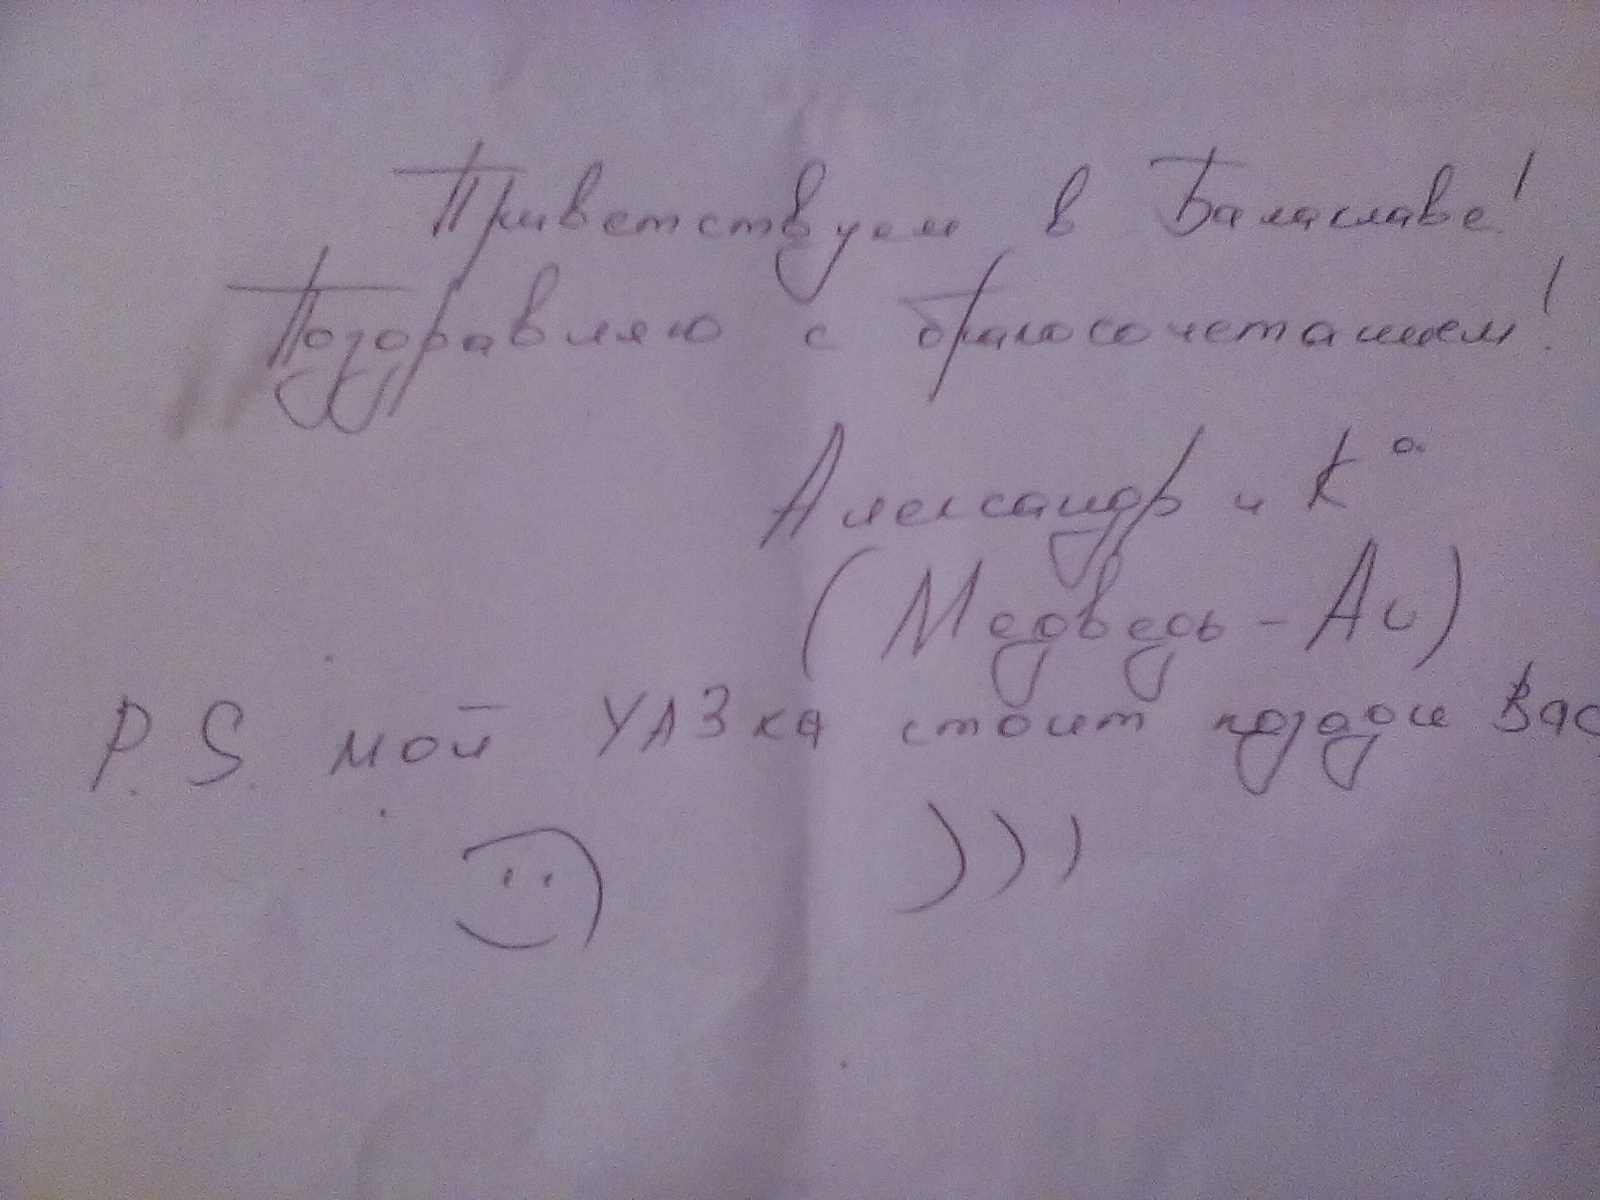 Приветствуем в Балаклаве!
Поздравляю с бракосочетанием!
Александр и Kº
(Медведь - Аи)
P.S. мой УАЗка стоит позади Вас
:) )))